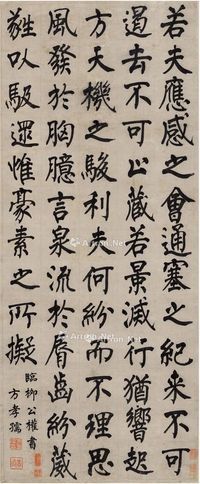 若夫應感之會通塞之紀來不可
遏去不可止藏若景滅行猶響起
方天機之駿利夫何紛而不理思
風發於胸臆言泉流於脣齒紛葳
蕤以馺遝惟豪素之所擬
臨柳公權書
方孝孺